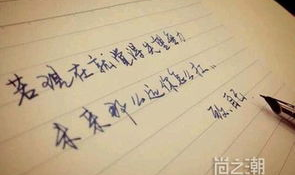 若现在就觉得失望无力
未来那么远你怎么扛。
尚之潮